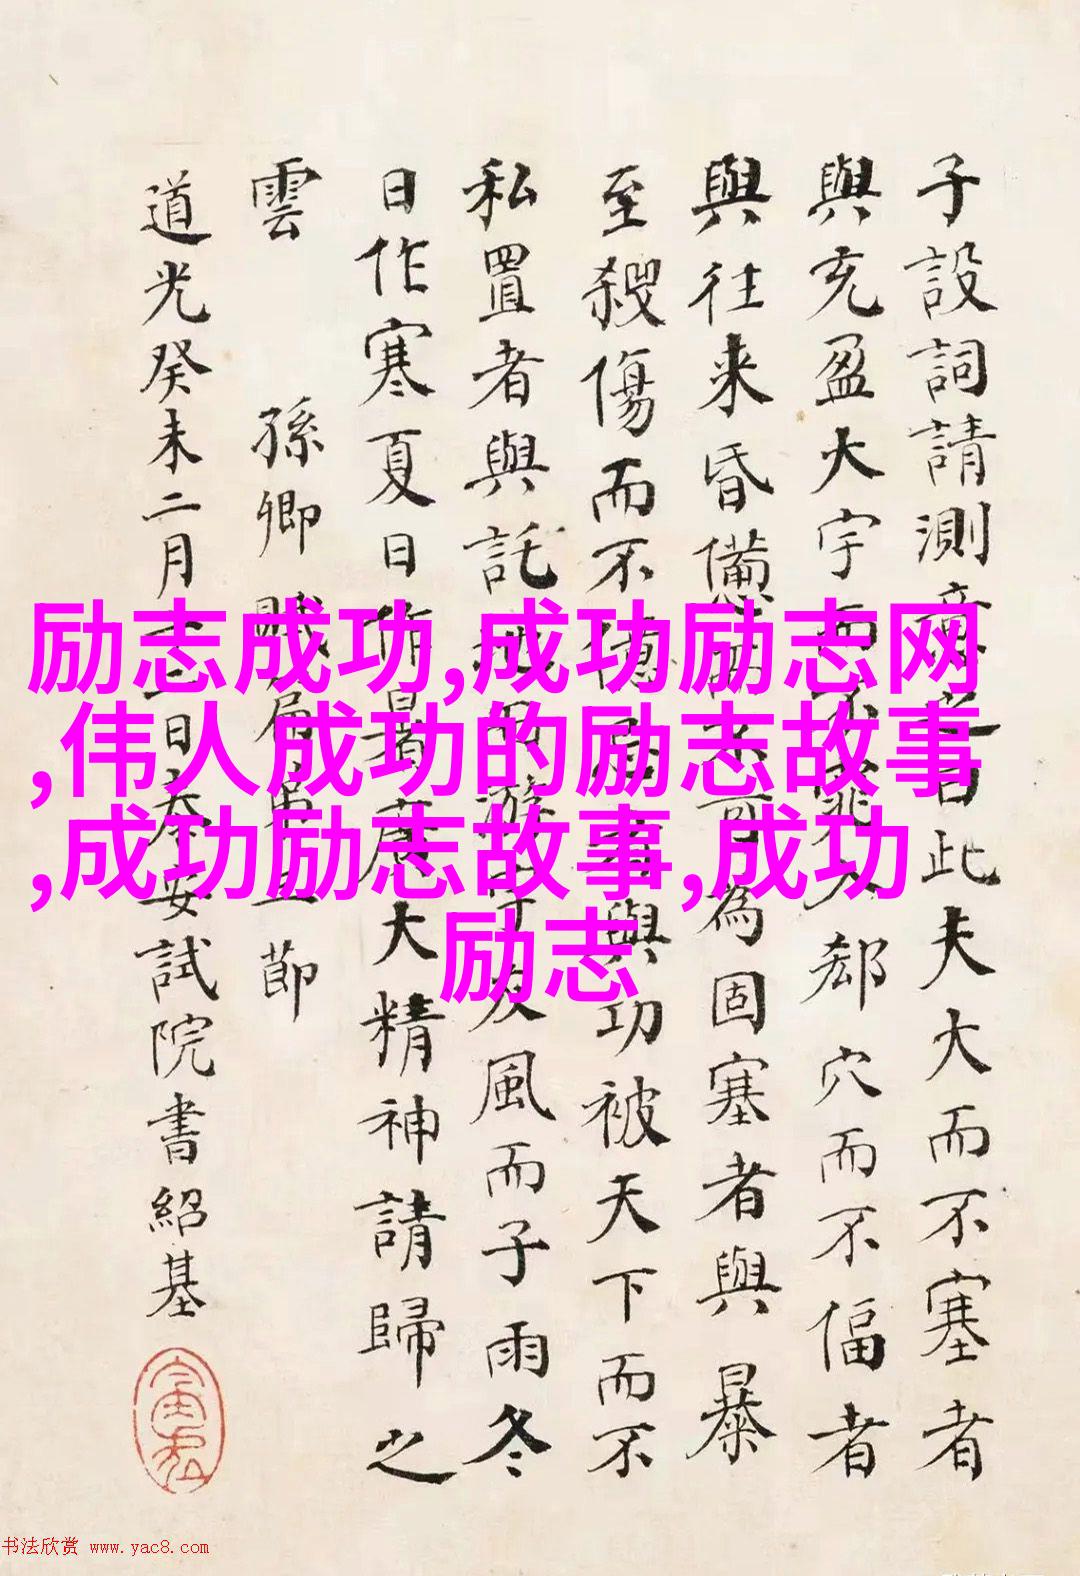 子設詞請測意之曰此夫大而不塞者
與充盈大宇而不窕入郄穴而不偪者
與往来昏憊而不可為固塞者與暴
至殺傷而不億忌者與功被天下而不
私置者與託地而游宇友風而子雨冬
日作寒夏日作暑廣大精神請歸之
雲 孫卿賦 節
道光癸未二月 日泰安試院書紹基
励志成功,成功励志网
,伟人成功的励志故事
,成功励志故事,成功
励志
书法欣赏 www.yac8.com